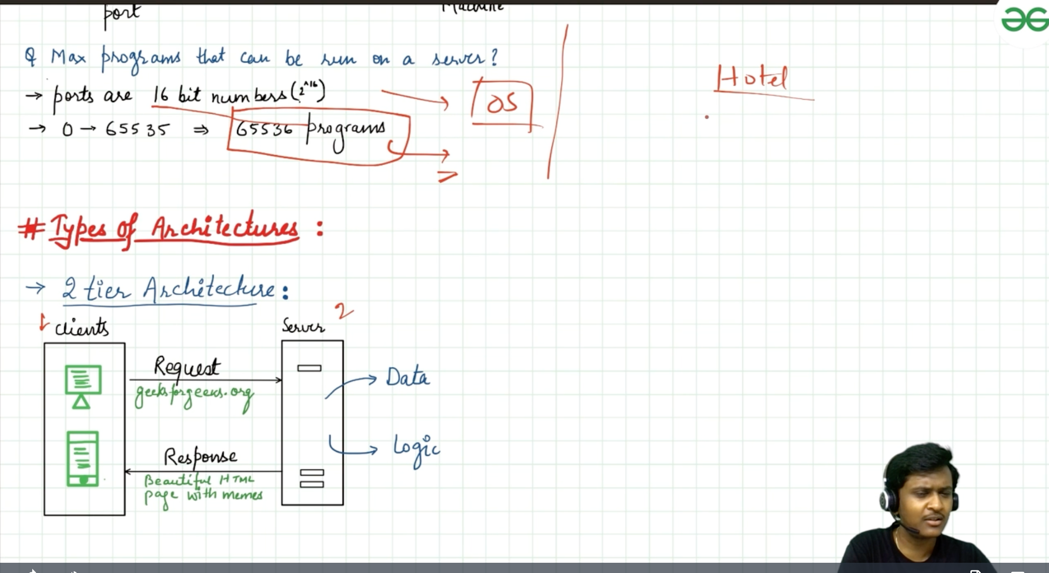 port
Machine
Q Max programs that can be run on a server?
→ ports are 16 bit numbers (2^16)
→ 0 → 65535 ⇒ 65536 programs
OS
Hotel
# Types of Architectures :
→ 2 tier Architecture :
1 clients
Server 2
Request
geeksforgeeks.org
Data
Logic
Response
Beautiful HTML
page with memes